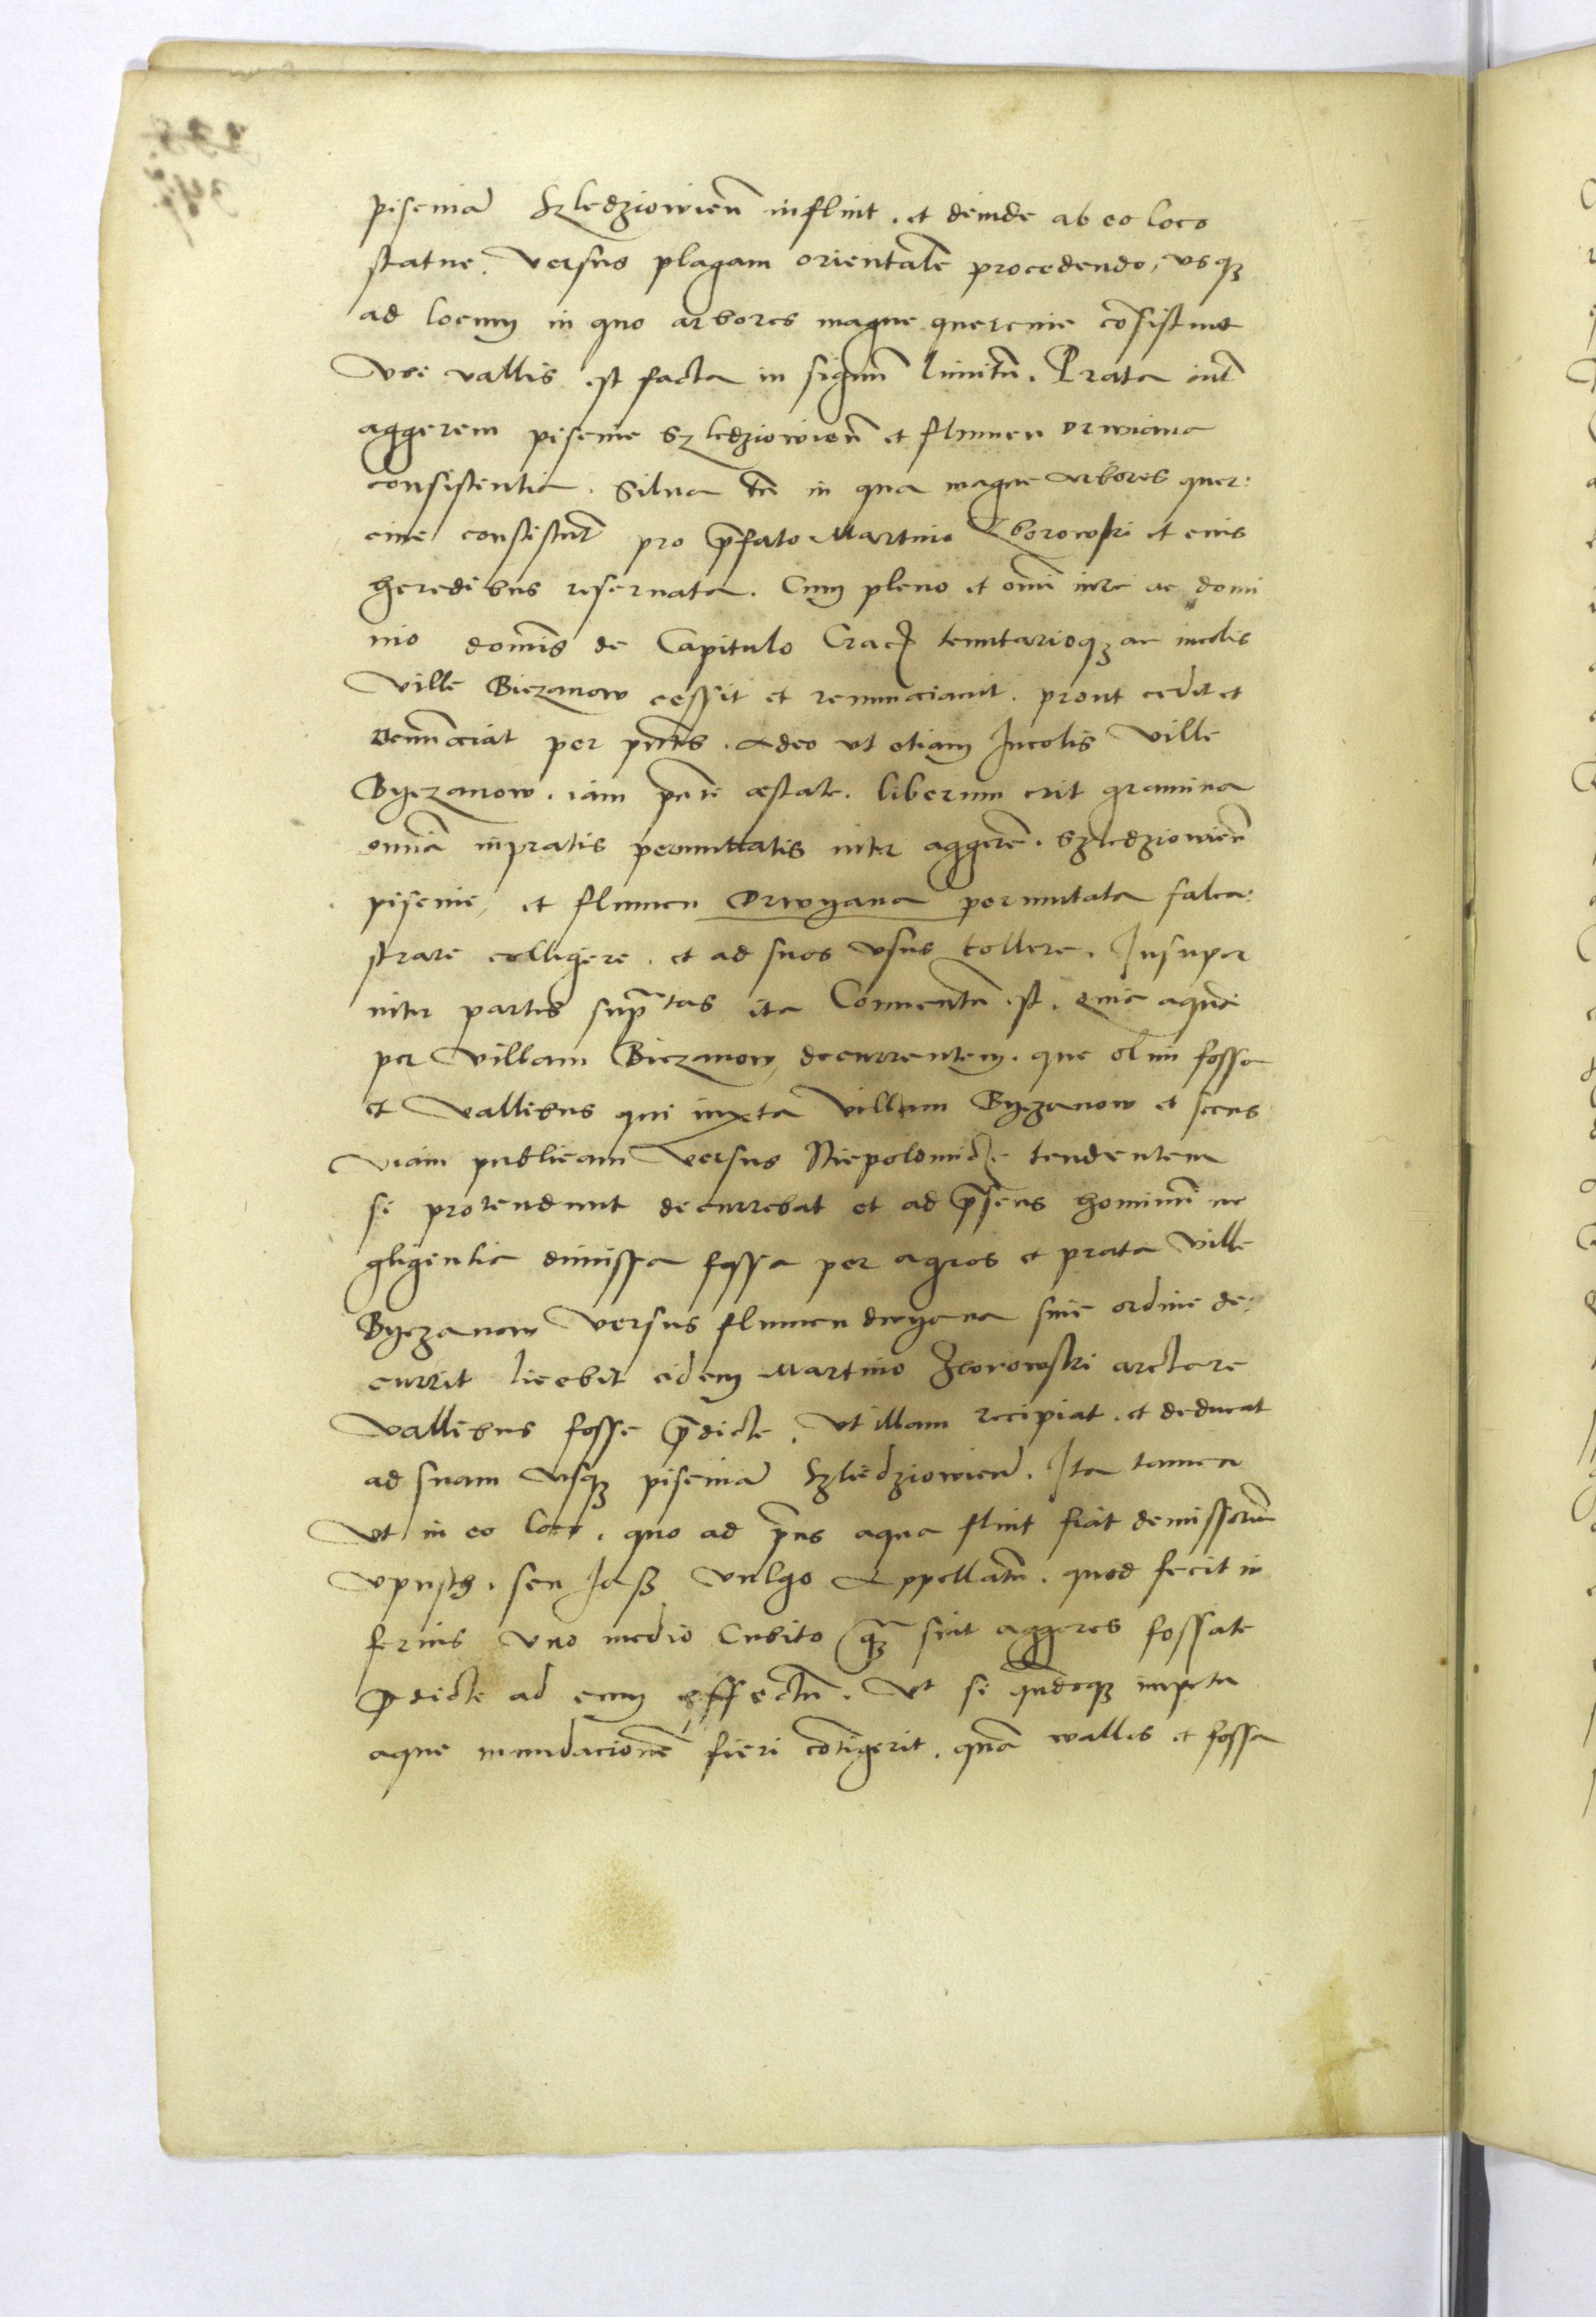 piscinā Szledziowieñ influit. et deinde ab eo loco
statue. versus plagam orientalē procedendo, vsqȝ
ad locum in quo arbores magne quercine cōsistunt
Vbi vallis est facta in signū limitū. Prata intͬ
aggerem piscine Szledziowieñ et flumen Drwiana
consistentia. Silua tn̄ in qua magne arbores quer:
cine consistūt pro p̄fato Martino Zborowski et eius
heredibus reseruata. Cum pleno et omī iure ac domi
nio dominis de Capitulo Crac tenutarioqȝ ac incolis
Ville Biezanow cessit et renunciauit. prout cedit et
renūciat per pn̄tes. Adeo vt etiam Incolis Ville
Byezanow. iam pn̄te æstate. liberum erit gramina
omnia in pratis permuttatis inter aggerē. Szledziowieñ
piscine, et flumen Drwyana permutata falca:
strare colligere. et ad suos vsus tollere. Insuper
inter partes supratas ita Conuentū est. quia aquā
per villam Biezanow, decurrentem. que olim fossa
et vallibus qui iuxta villam Byezanow et secus
viam publicam versus Niepolomicze tendentem
se protendunt decurrebat et ad præsens hominū ne
gligentia dimissa fossa per agros et prata Ville
Byezanow versus flumen drwyana sine ordine de:
currit licebit eidem Martino Zborowski arctare
vallibus fosse p̄dicte. vt illam recipiat. et deducat
ad suam vsqȝ piscinā Szliedziowieñ. Ita tamen
Vt in eo loco. quo ad p̄ns aqua fluit fiat demissoriū
vpusth. seu Jaß vulgo Appellatū. quod fecit in
ferius vno medio Cubito qȝ sint aggeres fossate
p̄dicte ad eum effectū. Vt si quādoqȝ impetu
aque inundacionē fieri cōtigerit. quā vallis et fossa